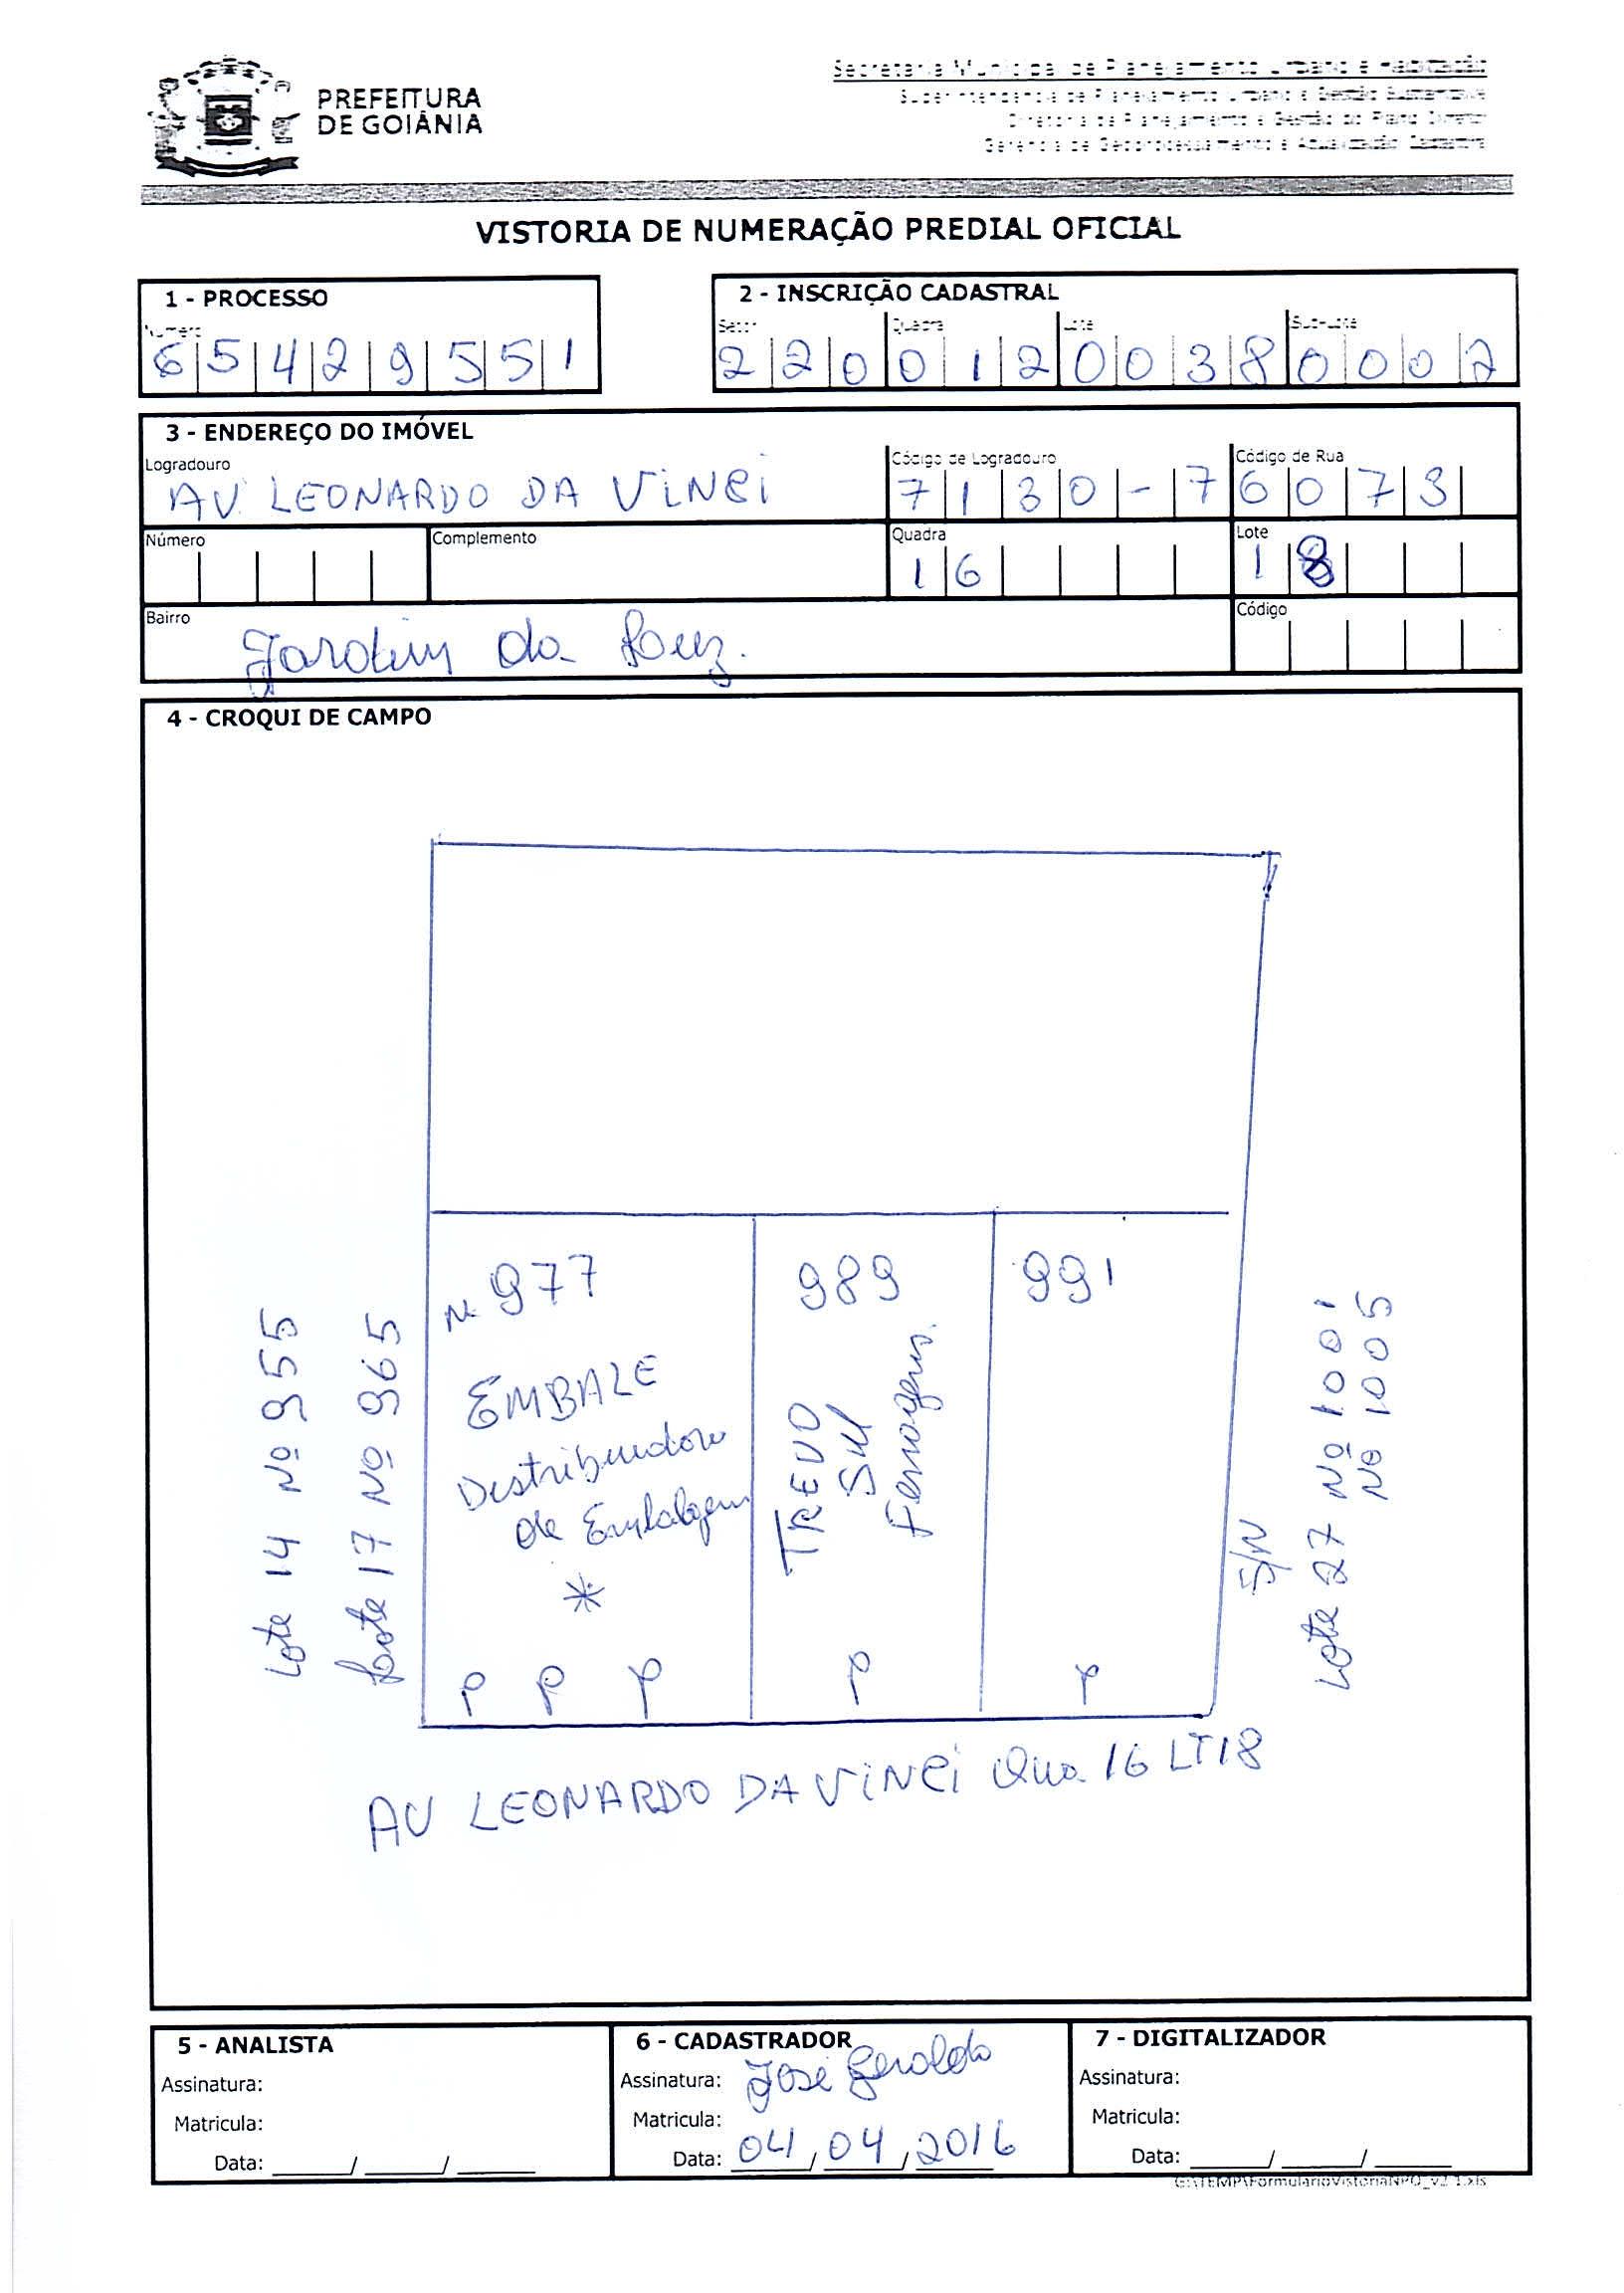 PREFEITURA
DE GOIÂNIA
Secretaria Municipal de Planejamento Urbano e Habitação
Superintendência de Planejamento Urbano e Gestão Sustentável
Diretoria de Planejamento e Gestão do Plano Diretor
Gerência de Geoprocessamento e Atualização Cadastral
VISTORIA DE NUMERAÇÃO PREDIAL OFICIAL
1 - PROCESSO
Número
6 5 4 2 9 5 5 1
2 - INSCRIÇÃO CADASTRAL
Setor Quadra Lote Sub-Lote
2 2 0 0 1 2 0 0 3 8 0 0 0 2
3 - ENDEREÇO DO IMÓVEL
Logradouro Código de Logradouro Código de Rua
AV. LEONARDO DA VINCI 7 1 3 0 - 7 6 0 7 3
Número Complemento Quadra Lote
1 6 1 8
Bairro Código
Jardim da Luz.
4 - CROQUI DE CAMPO
Nº 977 989 991
EMBALE
Distribuidora
de Embalagem
*
TREVO
SUL
Ferragens.
Lote 14 Nº 955
Lote 17 Nº 965
S/N
Lote 27 Nº 1001
Nº 1005
P P P P P
AV LEONARDO DA VINCI Qua. 16 LT 18
5 - ANALISTA
Assinatura:
Matricula:
Data: ____/____/____
6 - CADASTRADOR
Assinatura: José Geraldo
Matricula:
Data: 04/04/2016
7 - DIGITALIZADOR
Assinatura:
Matricula:
Data: ____/____/____
G:\TEMP\FormularioVistoriaNPO_v2.1.xls